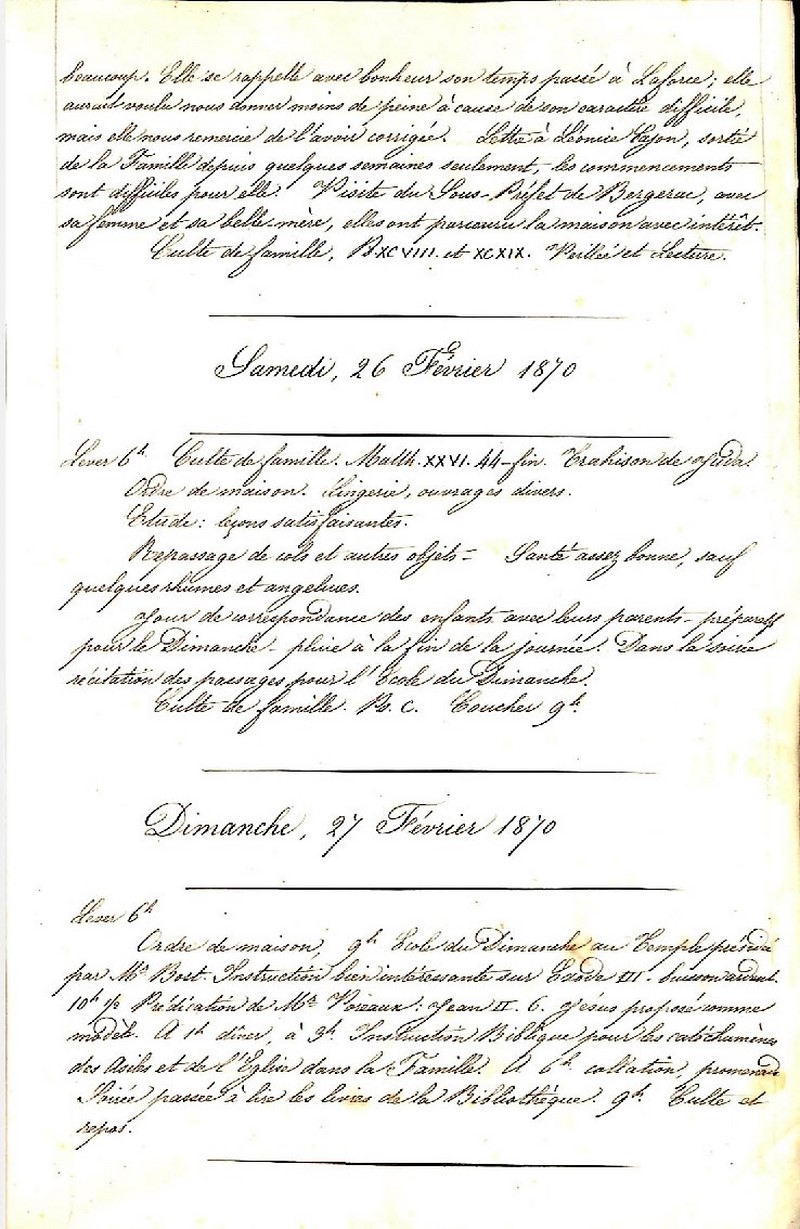 beaucoup. Elle se rappelle avec bonheur son temps passé à Laforce; elle
aurait voulu nous donner moins de peine à cause de son caractère difficile,
mais elle nous remercie de l'avoir corrigée. Lettre à Léonie sortie
de la Famille depuis quelques semaines seulement, les commencements
sont difficiles pour elle. Visite du Sous-Préfet de Bergerac, avec
sa femme et sa belle-mère, elles ont parcouru la maison avec intérêt.
Culte de famille, Ps. XCVIII. et XCXIX. Veillée et Lecture.
Samedi, 26 Février 1870
Lever 6h Culte de famille. Matth. XXVI. 44-fin. Trahison de Juda.
Ordre de maison. Lingerie, ouvrages divers.
Etude: leçons satisfaisantes.
Repassage de cols et autres objets - Santé assez bonne, sauf
quelques rhumes et angelures.
Jour de correspondance des enfants avec leurs parents - préparatifs
pour le Dimanche - pluie à la fin de la journée. Dans la soirée
récitation des passages pour l'Ecole du Dimanche.
Culte de famille. Ps. C. Coucher 9h.
Dimanche, 27 Février 1870
Lever 6h
Ordre de maison, 9h Ecole du Dimanche au Temple présidé
par Mr Bost. Instruction bien intéressante sur Exode III. buisson ardent.
10h 1/2 Prédication de Mr : Jean II. 6. Jésus proposé comme
modèle. A 1h dîner, à 3h. Instruction Biblique pour les catéchumènes
des Asiles et de l'Eglise dans la Famille. A 6h collation, promenade
Soirée passée à lire les livres de la Bibliothèque. 9h. Culte et
repos.